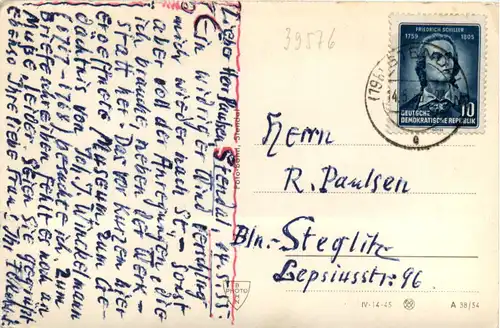 39576
FRIEDRICH SCHILLER
1759 1805
10
DEUTSCHE
DEMOKRATISCHE REPUBLIK
Stendal, 14.5.55.
Ein widriger Wind verschlug
mich wieder nach St, - sonst
aber voll der Anregungen die
ich brauche, neben der Werk-
statt her. Das vor kurzem hier
eröffnete Museum zum Ge-
dächtnis von Joh. J. Winckelmann
(1717-1768) besuchte ich. Zum
Briefeschreiben fehlt es nur an
Muße, leider. Seien Sie gegrüßt
ebenso Ihre liebe Frau. Ihr
Herrn
R. Paulsen
Bln.-Steglitz
Lepsiusstr. 96
PHOTO
IV-14-45 A 38/54